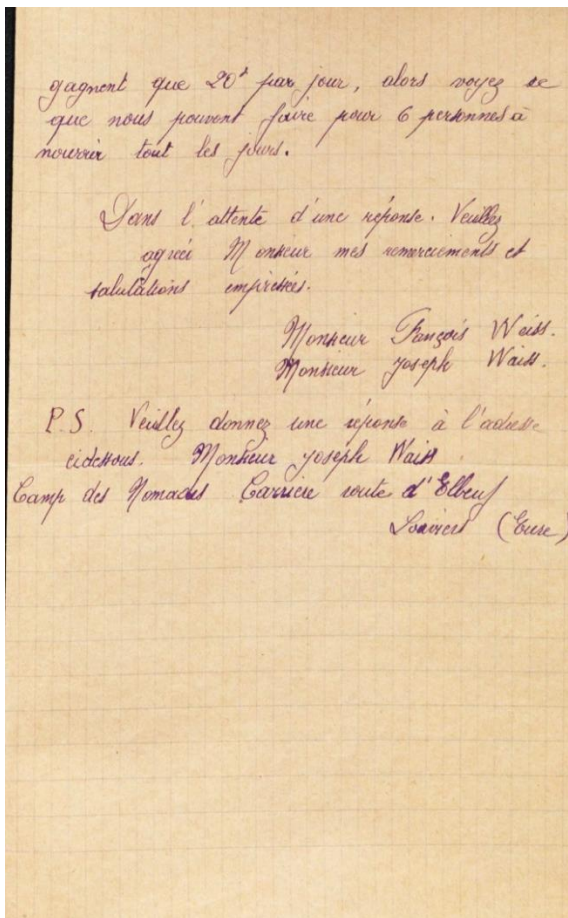 gagnent que 20f par jour, alors voyez ce
que nous pouvent faire pour 6 personnes à
nourrir tout les jours.
Dans l'attente d'une réponse. Veuillez
agréé Monsieur mes remerciements et
salutations empressées.
Monsieur François Weiss.
Monsieur Joseph Waiss.
P.S. Veuillez donnez une réponse à l'adresse
cidessous. Monsieur Joseph Waiss.
Camp des Nomades Carrière route d'Elbeuf
Louviers (Eure)